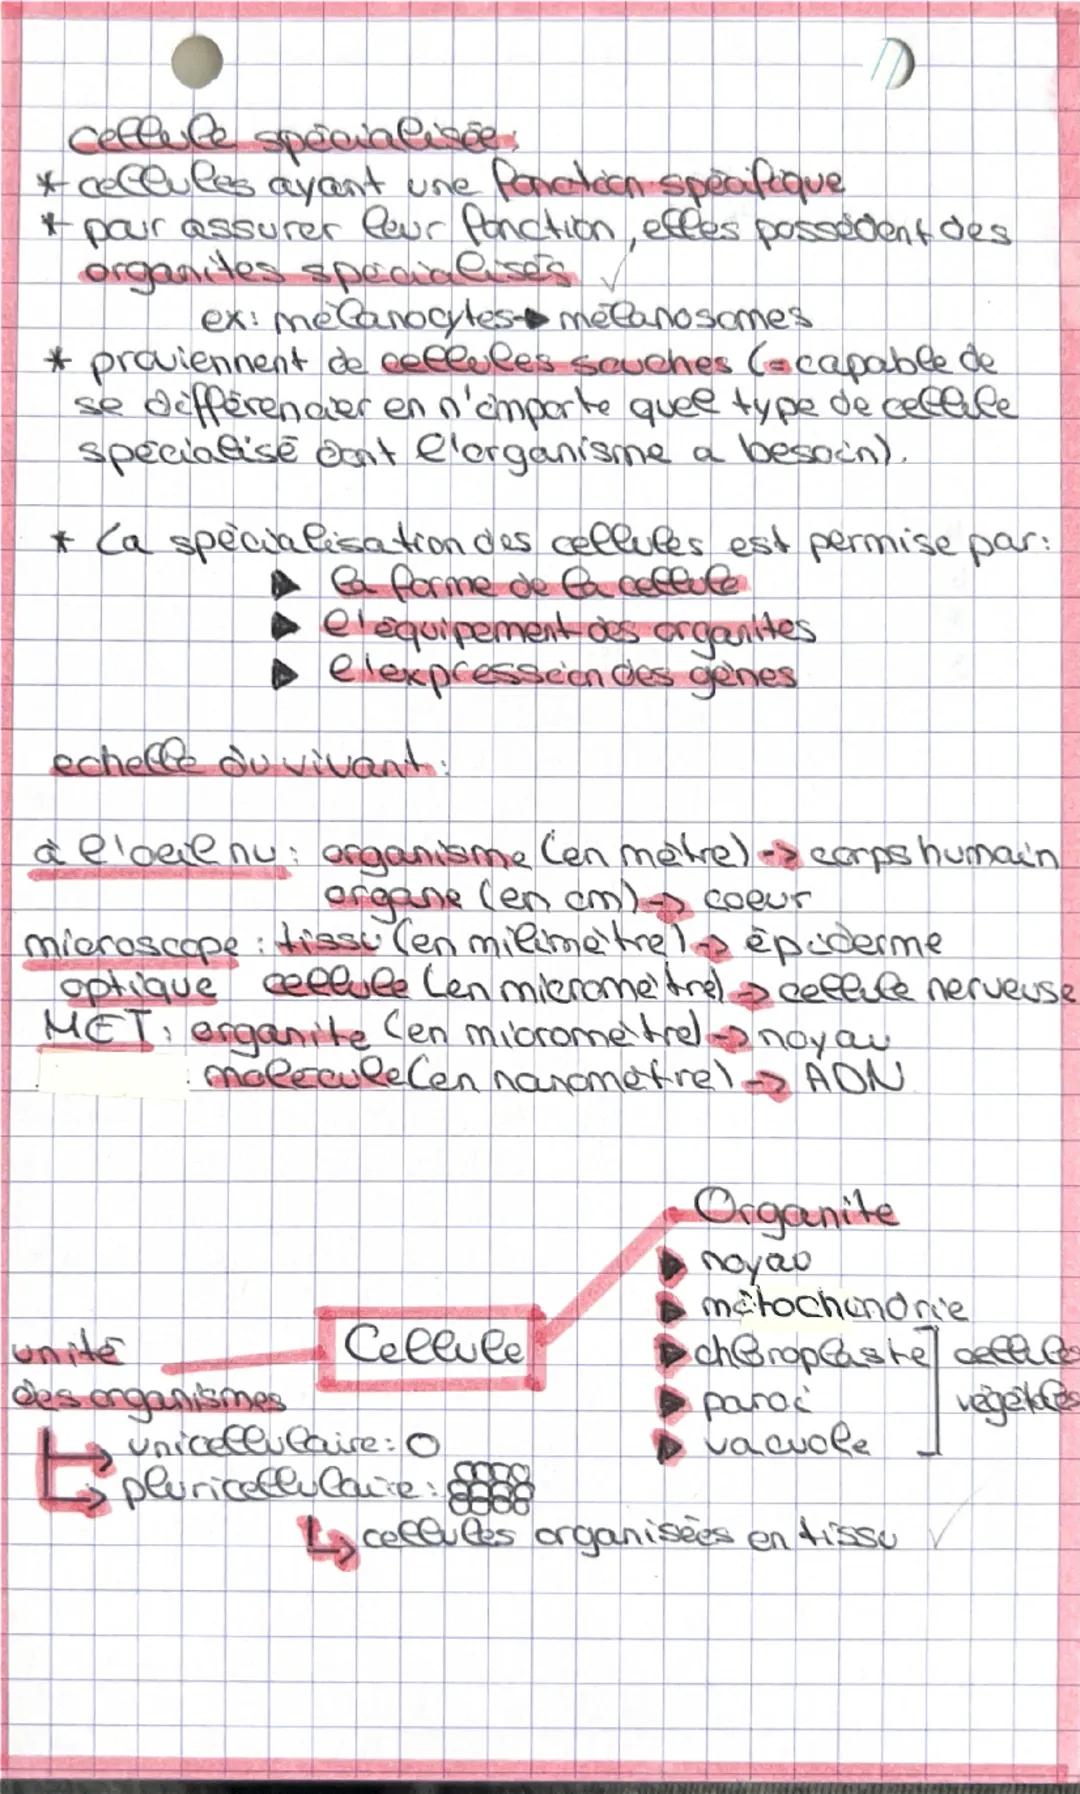 cellule spécialisée:
* cellules ayant une fonction spécifique
* pour assurer leur fonction, elles possèdent des
organites spécialisés
ex: mélanocytes → mélanosomes
* proviennent de cellules souches (= capable de
se différencier en n'importe quel type de cellule
spécialisé dont l'organisme a besoin).
* la spécialisation des cellules est permise par:
▶ la forme de la cellule
▶ l'équipement des organites
▶ l'expression des gènes
echelle du vivant:
à l'oeil nu: organisme (en mètre) → corps humain
organe (en cm) → coeur
microscope : tissu (en milimètre) → épiderme
optique cellule (en micromètre) → cellule nerveuse
MET: organite (en micromètre) → noyau
molecule (en nanomètre) → ADN
Organite
▶ noyau
▶ mitochondrie
unité Cellule ▶ chloroplaste cellules
des organismes ▶ paroi végétales
→ unicellulaire: O ▶ vacuole
→ pluricellulaire:
↳ cellules organisées en tissu